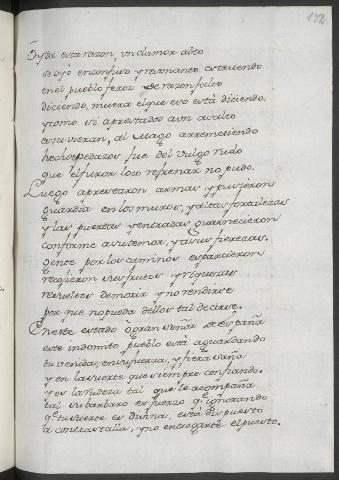 172
Oyda esta razon, un clamor alto
se oyò en confuso y resonante estruendo
en el pueblo feroz de razon falto
diciendo, muera el que eso està diciendo.
y como si aprestados a un asalto
estuvieran, al Mago arremetiendo
hecho pedazos fue del vulgo rudo
que el furor loco refrenar no pudo.
Luego aprestaron armas y pusieron
guardia en los muros, y altas fortalezas
y las puertas y entradas guarnecieron
conforme a su temor, y a sus fierezas.
gente por los caminos esparcieron
recogieron sus frutos y riquezas
resueltos de morir y no rendirse
por que no pueda dellos tal decirse.
En este estado ò gran señor de España
este indomito pueblo està aguardando
tu venida, en su fuerza, y fiera saña
y en la suerte que siempre confiando.
y es la rudeza tal que le acompaña
tal su barbaro esfuerzo q.e ignorando
q.e tu suerte es divina, està dispuesto
a contrastalla, y no entregarte el puesto.